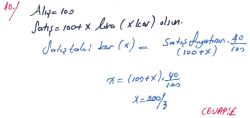 10./
Alış=100
Satış=100+x lira (x kar) olsun.
Satıştaki kar (x) = Satış fiyatının. 40/100
(100+x)
x=(100+x).40/100
x=200/3
CEVAP:E